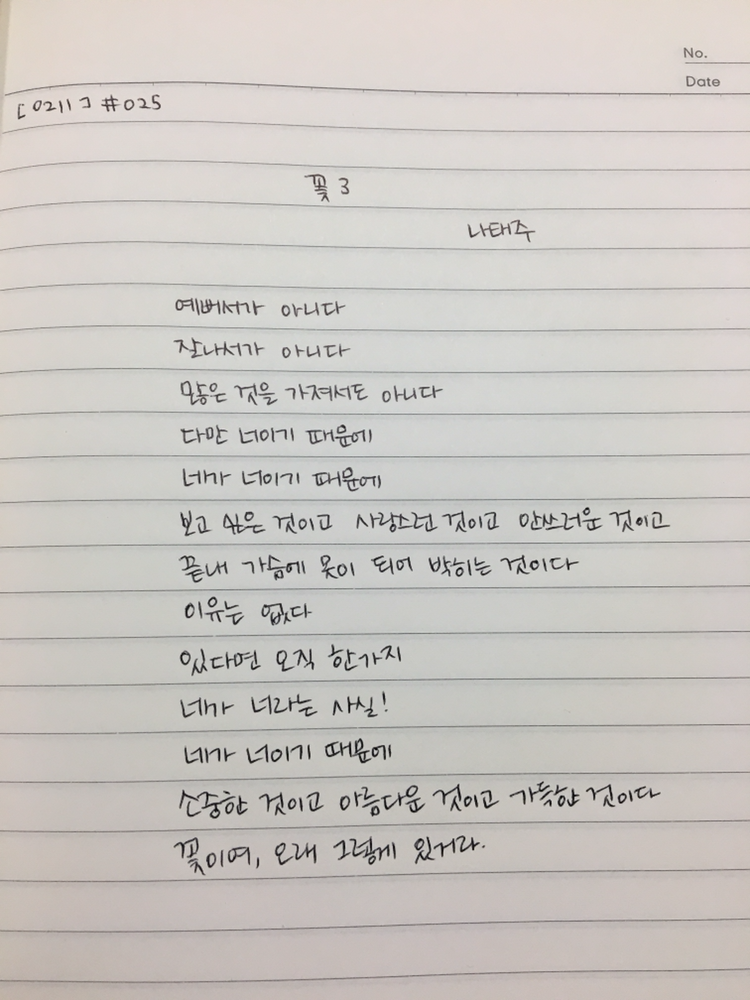 No.
Date
[0211] #025
꽃 3
나태주
예뻐서가 아니다
잘나서가 아니다
많은 것을 가져서도 아니다
다만 너이기 때문에
네가 너이기 때문에
보고 싶은 것이고 사랑스런 것이고 안쓰러운 것이고
끝내 가슴에 못이 되어 박히는 것이다
이유는 없다
있다면 오직 한가지
네가 너라는 사실!
네가 너이기 때문에
소중한 것이고 아름다운 것이고 가득한 것이다
꽃이여, 오래 그렇게 있거라.